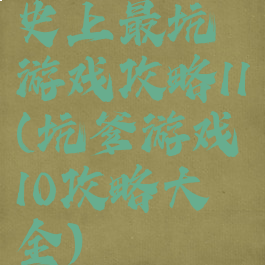 史上最坑
游戏攻略11
(坑爹游戏
10攻略大
全)